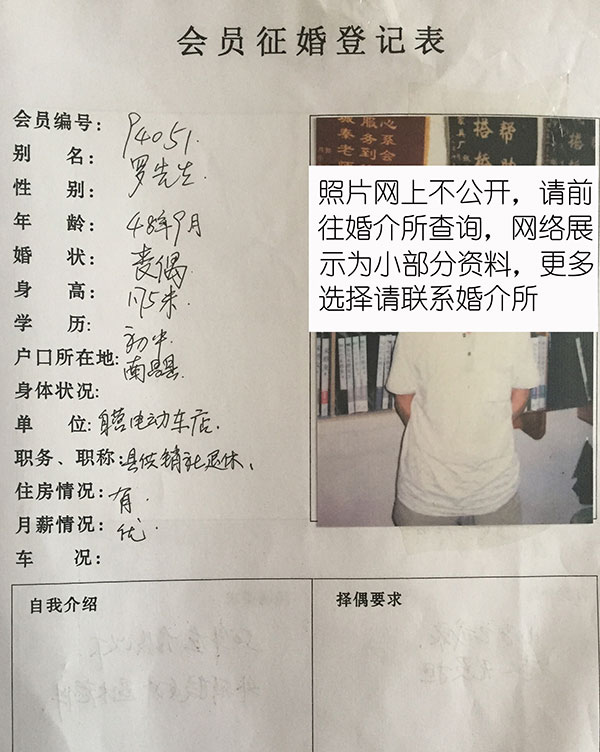 会员征婚登记表
会员编号: P4051.
别 名: 罗先生.
性 别:
年 龄: 48年9月
婚 状: 丧偶
身 高: 1.75米
学 历: 初中.
户口所在地: 南昌县
身体状况:
单 位: 自营电动车店.
职务、职称: 县供销社退休、
住房情况: 有.
月薪情况: 优.
车 况:
自我介绍
择偶要求
心萃会
服务到
诚奉老师
帮助
搭桥
照片网上不公开，请前
往婚介所查询，网络展
示为小部分资料，更多
选择请联系婚介所